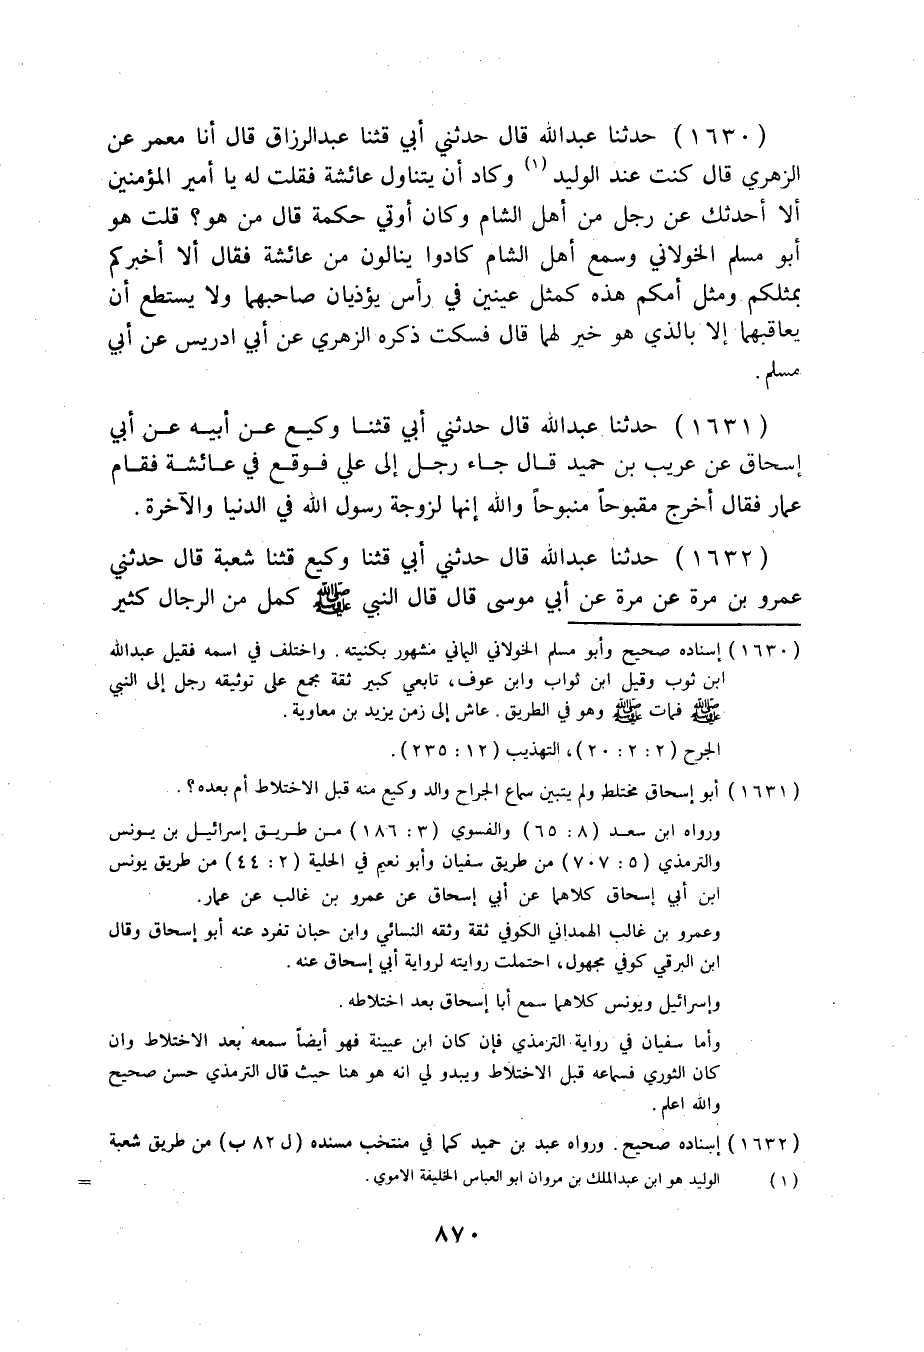 (١٦٣٠) حدثنا عبدالله قال حدثني أبي قثنا عبدالرزاق قال أنا معمر عن
الزهري قال كنت عند الوليد (١) وكاد أن يتناول عائشة فقلت له يا أمير المؤمنين
ألا أحدثك عن رجل من أهل الشام وكان أوتي حكمة قال من هو؟ قلت هو
أبو مسلم الخولاني وسمع أهل الشام كادوا ينالون من عائشة فقال ألا أخبركم
بمثلكم ومثل أمكم هذه كمثل عينين في رأس يؤذيان صاحبهما ولا يستطع أن
يعاقبهما إلا بالذي هو خير لهما قال فسكت ذكره الزهري عن أبي ادريس عن أبي
مسلم.
(١٦٣١) حدثنا عبدالله قال حدثني أبي قثنا وكيع عن أبيه عن أبي
إسحاق عن عريب بن حميد قال جاء رجل إلى علي فوقع في عائشة فقام
عمار فقال أخرج مقبوحاً منبوحاً والله إنها لزوجة رسول الله في الدنيا والآخرة.
(١٦٣٢) حدثنا عبدالله قال حدثني أبي قثنا وكيع قثنا شعبة قال حدثني
عمرو بن مرة عن مرة عن أبي موسى قال قال النبي ﷺ كمل من الرجال كثير
(١٦٣٠) إسناده صحيح وأبو مسلم الخولاني اليماني مشهور بكنيته. واختلف في اسمه فقيل عبدالله
ابن ثوب وقيل ابن ثواب وابن عوف، تابعي كبير ثقة مجمع على توثيقه رجل إلى النبي
ﷺ فمات ﷺ وهو في الطريق. عاش إلى زمن يزيد بن معاوية.
الجرح (٢ : ٢ : ٢٠)، التهذيب (١٢ : ٢٣٥).
(١٦٣١) أبو إسحاق مختلط ولم يتبين سماع الجراح والد وكيع منه قبل الاختلاط أم بعده؟.
ورواه ابن سعد (٨ : ٦٥) والفسوي (٣ : ١٨٦) من طريق إسرائيل بن يونس
والترمذي (٥ : ٧٠٧) من طريق سفيان وأبو نعيم في الحلية (٢ : ٤٤) من طريق يونس
ابن أبي إسحاق كلاهما عن أبي إسحاق عن عمرو بن غالب عن عمار.
وعمرو بن غالب الهمداني الكوفي ثقة وثقه النسائي وابن حبان تفرد عنه أبو إسحاق وقال
ابن البرقي كوفي مجهول، احتملت روايته لرواية أبي إسحاق عنه.
وإسرائيل ويونس كلاهما سمع أبا إسحاق بعد اختلاطه.
وأما سفيان في رواية الترمذي فإن كان ابن عيينة فهو أيضاً سمعه بعد الاختلاط وان
كان الثوري فسماعه قبل الاختلاط ويبدو لي انه هو هنا حيث قال الترمذي حسن صحيح
والله اعلم.
(١٦٣٢) إسناده صحيح. ورواه عبد بن حميد كما في منتخب مسنده (ل ٨٢ ب) من طريق شعبة
(١) الوليد هو ابن عبدالملك بن مروان ابو العباس الخليفة الاموي. =
٨٧٠